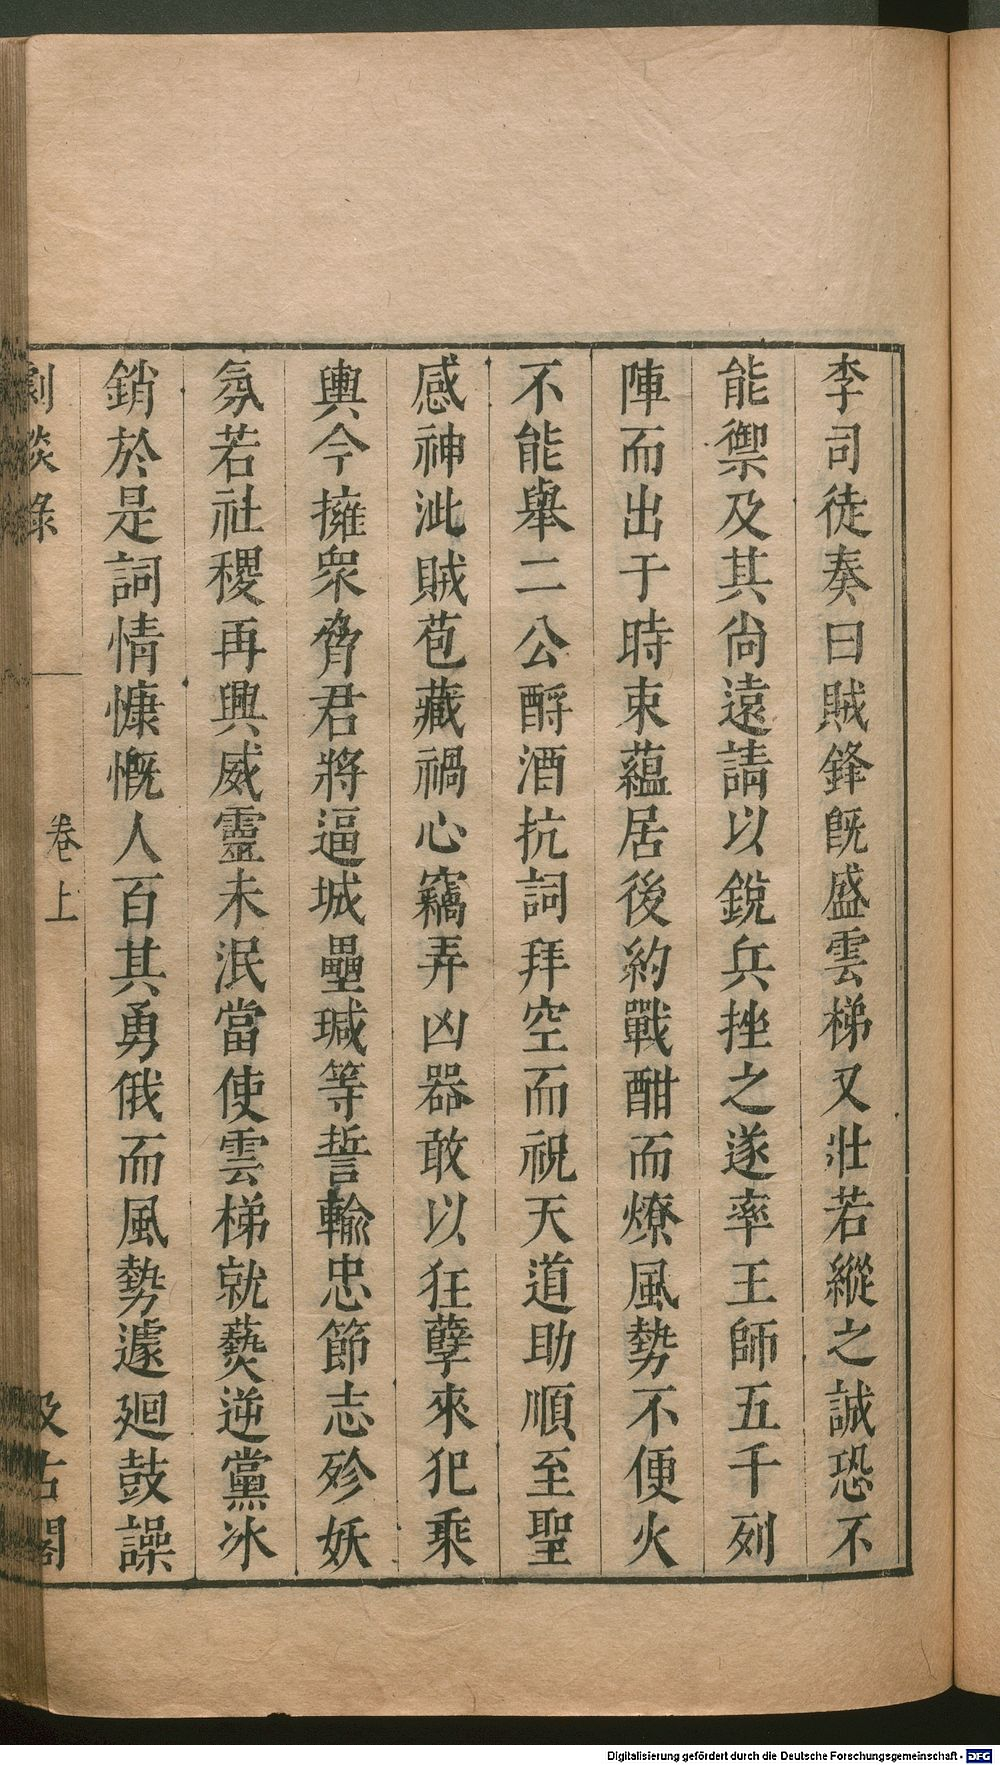 李司徒奏曰賊鋒旣盛雲梯又壯若縱之誠恐不
能禦及其尙遠請以銳兵挫之遂率王師五千列
陣而出于時束蘊居後約戰酣而燎風勢不便火
不能舉二公酹酒抗詞拜空而祝天道助順至聖
感神泚賊苞藏禍心竊弄凶器敢以狂孽來犯乘
輿今擁衆脅君將逼城壘瑊等誓輸忠節志殄妖
氛若社稷再興威靈未泯當使雲梯就爇逆黨冰
銷於是詞情慷慨人百其勇俄而風勢遽廻鼓譟
劇談錄 卷上 汲古閣
Digitalisierung gefördert durch die Deutsche Forschungsgemeinschaft - DFG